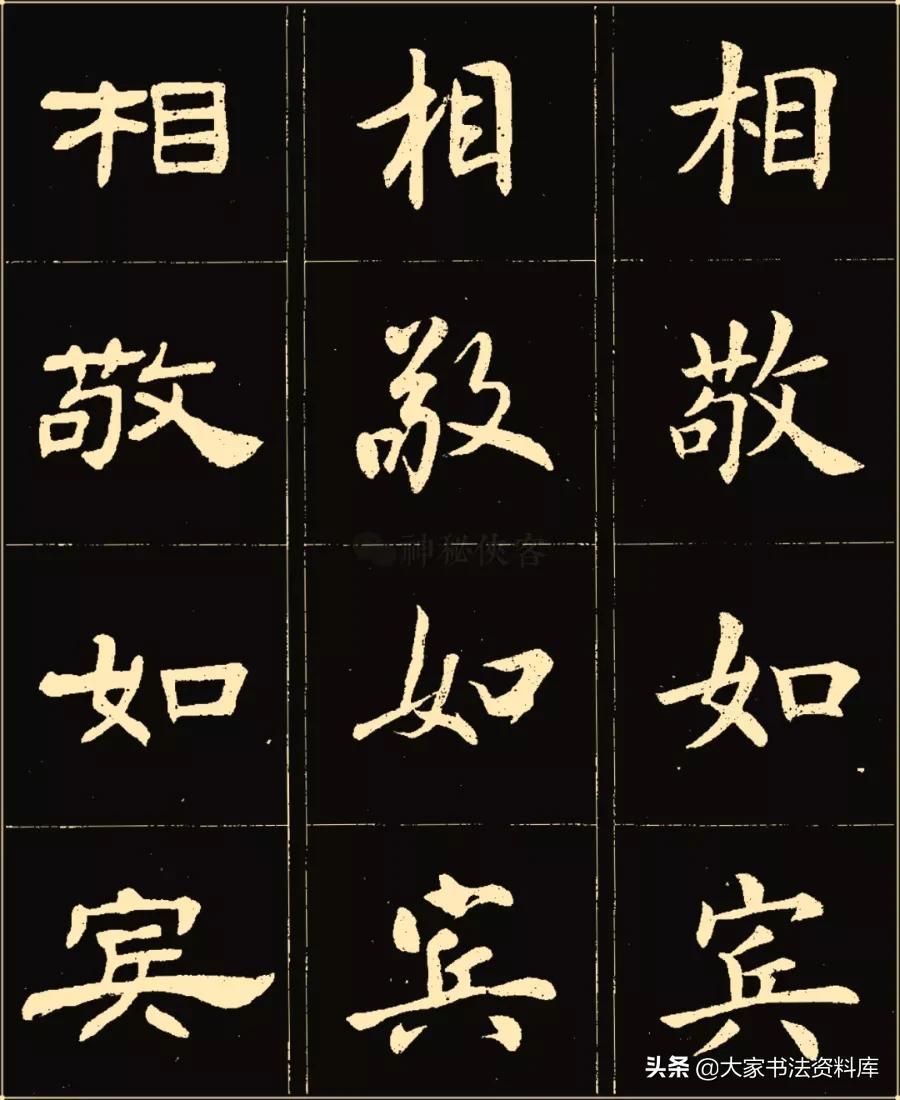 相敬如宾
相敬如宾
相敬如宾
神秘俠客
头条 @大家书法资料库